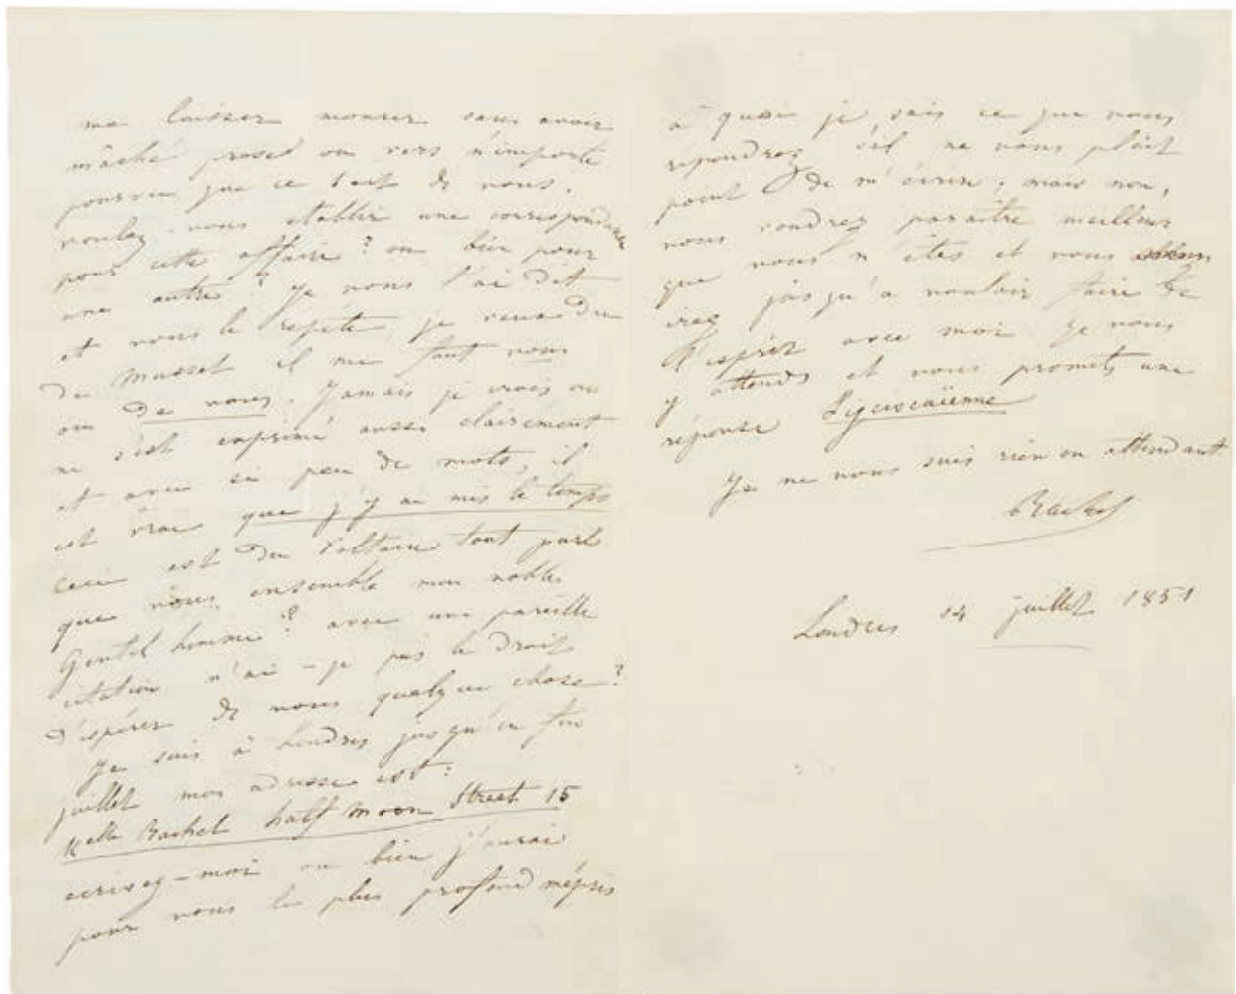 me laisser mourir sans avoir
mâché prose ou vers n'importe
pourvu que ce soit de vous.
voulez-vous établir une correspondance
pour cette affaire? ou bien pour
une autre? je vous l'ai dit
et vous le répète, je veux du
de Musset il me faut vous
ou de vous. Jamais je crois on
ne s'est exprimé aussi clairement
et avec si peu de mots, il
est vrai que j'y ai mis le temps
ceci est du Voltaire tout parle
que vous ensemble mon noble
Gentil homme? avec une pareille
citation n'ai-je pas le droit
d'espérer de vous quelque chose?
Je suis à Londres jusqu'en fin
juillet mon adresse est:
Melle Rachel half Moon Street 15
écrivez-moi ou bien j'aurai
pour vous le plus profond mépris
à quoi je sais ce que vous
répondrez s'il ne vous plait
point de m'écrire; mais non,
vous voudrez paraître meilleur
que vous n'êtes et vous
irez jusqu'à vouloir faire de
l'esprit avec moi je vous
y attends et vous promets une
réponse
Je ne vous suis rien en attendant
Rachel
Londres 14 juillet 1851